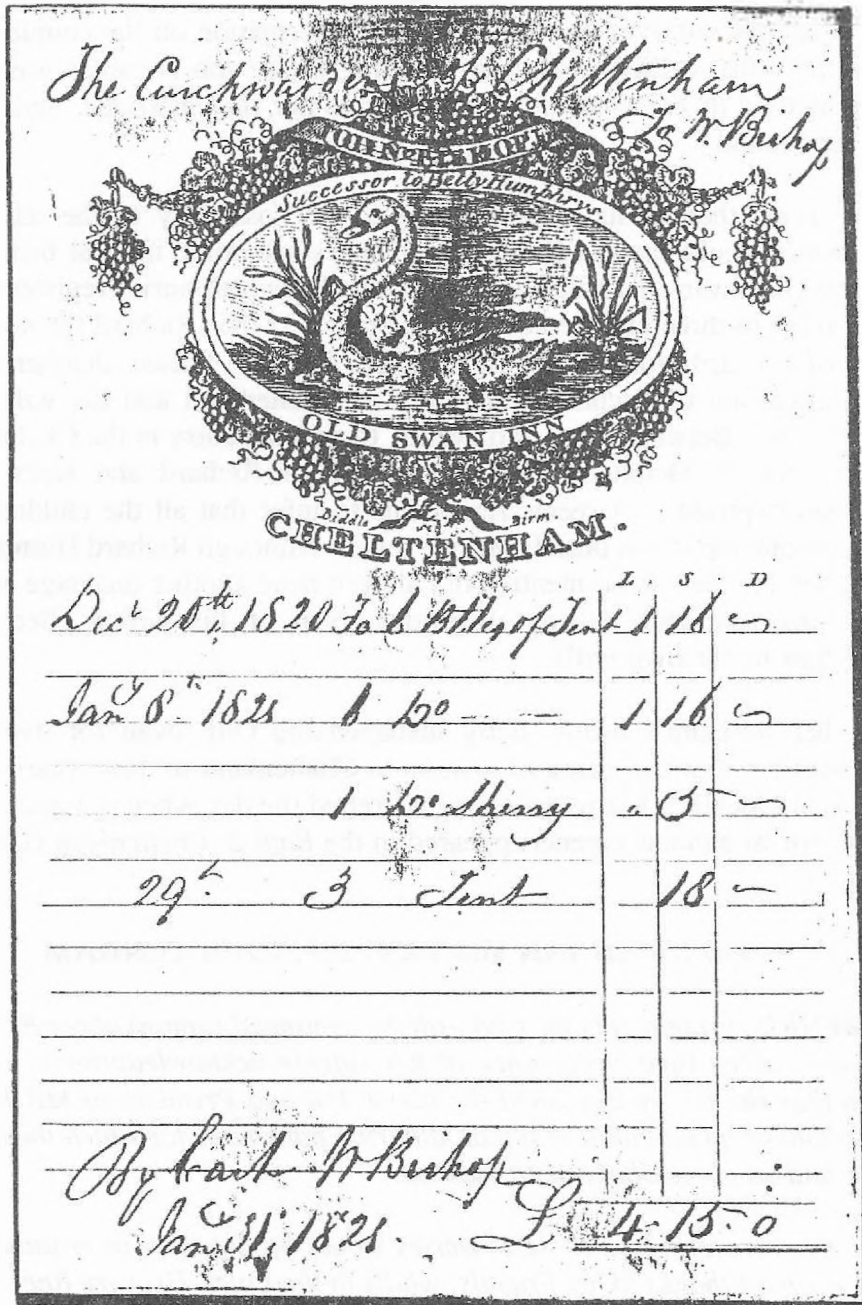 The Curchwardens of Cheltenham
To W. Bishop
Successor to Betty Humphry
OLD SWAN INN
CHELTENHAM.
L S D
Decr 26th 1820 To 6 Bottles of Tent 1 16 ~
Jany 8th 1821 6 Do 1 16 ~
1 Do Sherry " 5 ~
29th 3 Tent 18 ~
By Cash W Bishop
Jany 31st 1821. £ 4 15 0